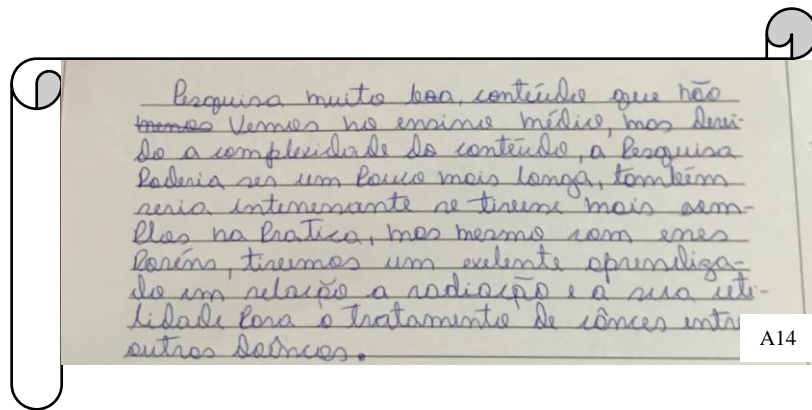 Pesquisa muito boa, conteúdo que não
menos Vemos no ensino médio, mas devi-
do a complexidade do conteúdo, a Pesquisa
Poderia ser um Pouco mais longa, também
seria interessante se tivesse mais exem-
Plos na Pratica, mas mesmo com esses
Poréns, tivemos um exelente aprendiza-
do em relação a radiação e a sua uti-
lidade Para o tratamento de cânces entre
outras doênças.
A14